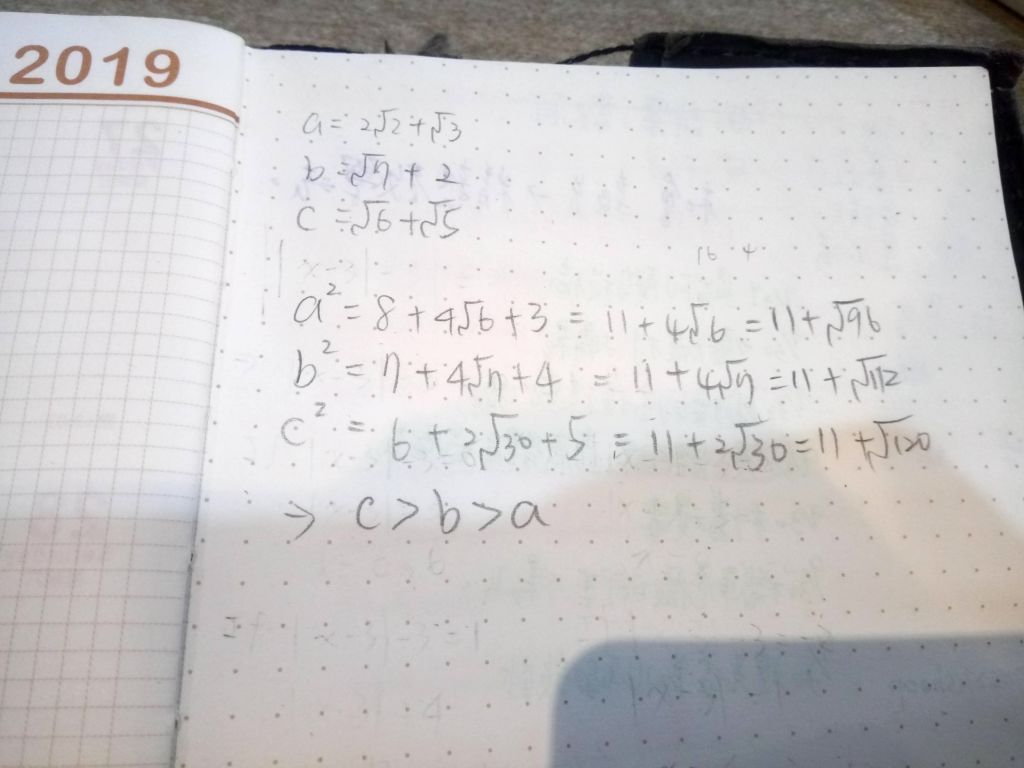 2019
a = 2√2 + √3
b = √7 + 2
c = √6 + √5
16 4
a² = 8 + 4√6 + 3 = 11 + 4√6 = 11 + √96
b² = 7 + 4√7 + 4 = 11 + 4√7 = 11 + √112
c² = 6 + 2√30 + 5 = 11 + 2√30 = 11 + √120
⇒ c > b > a